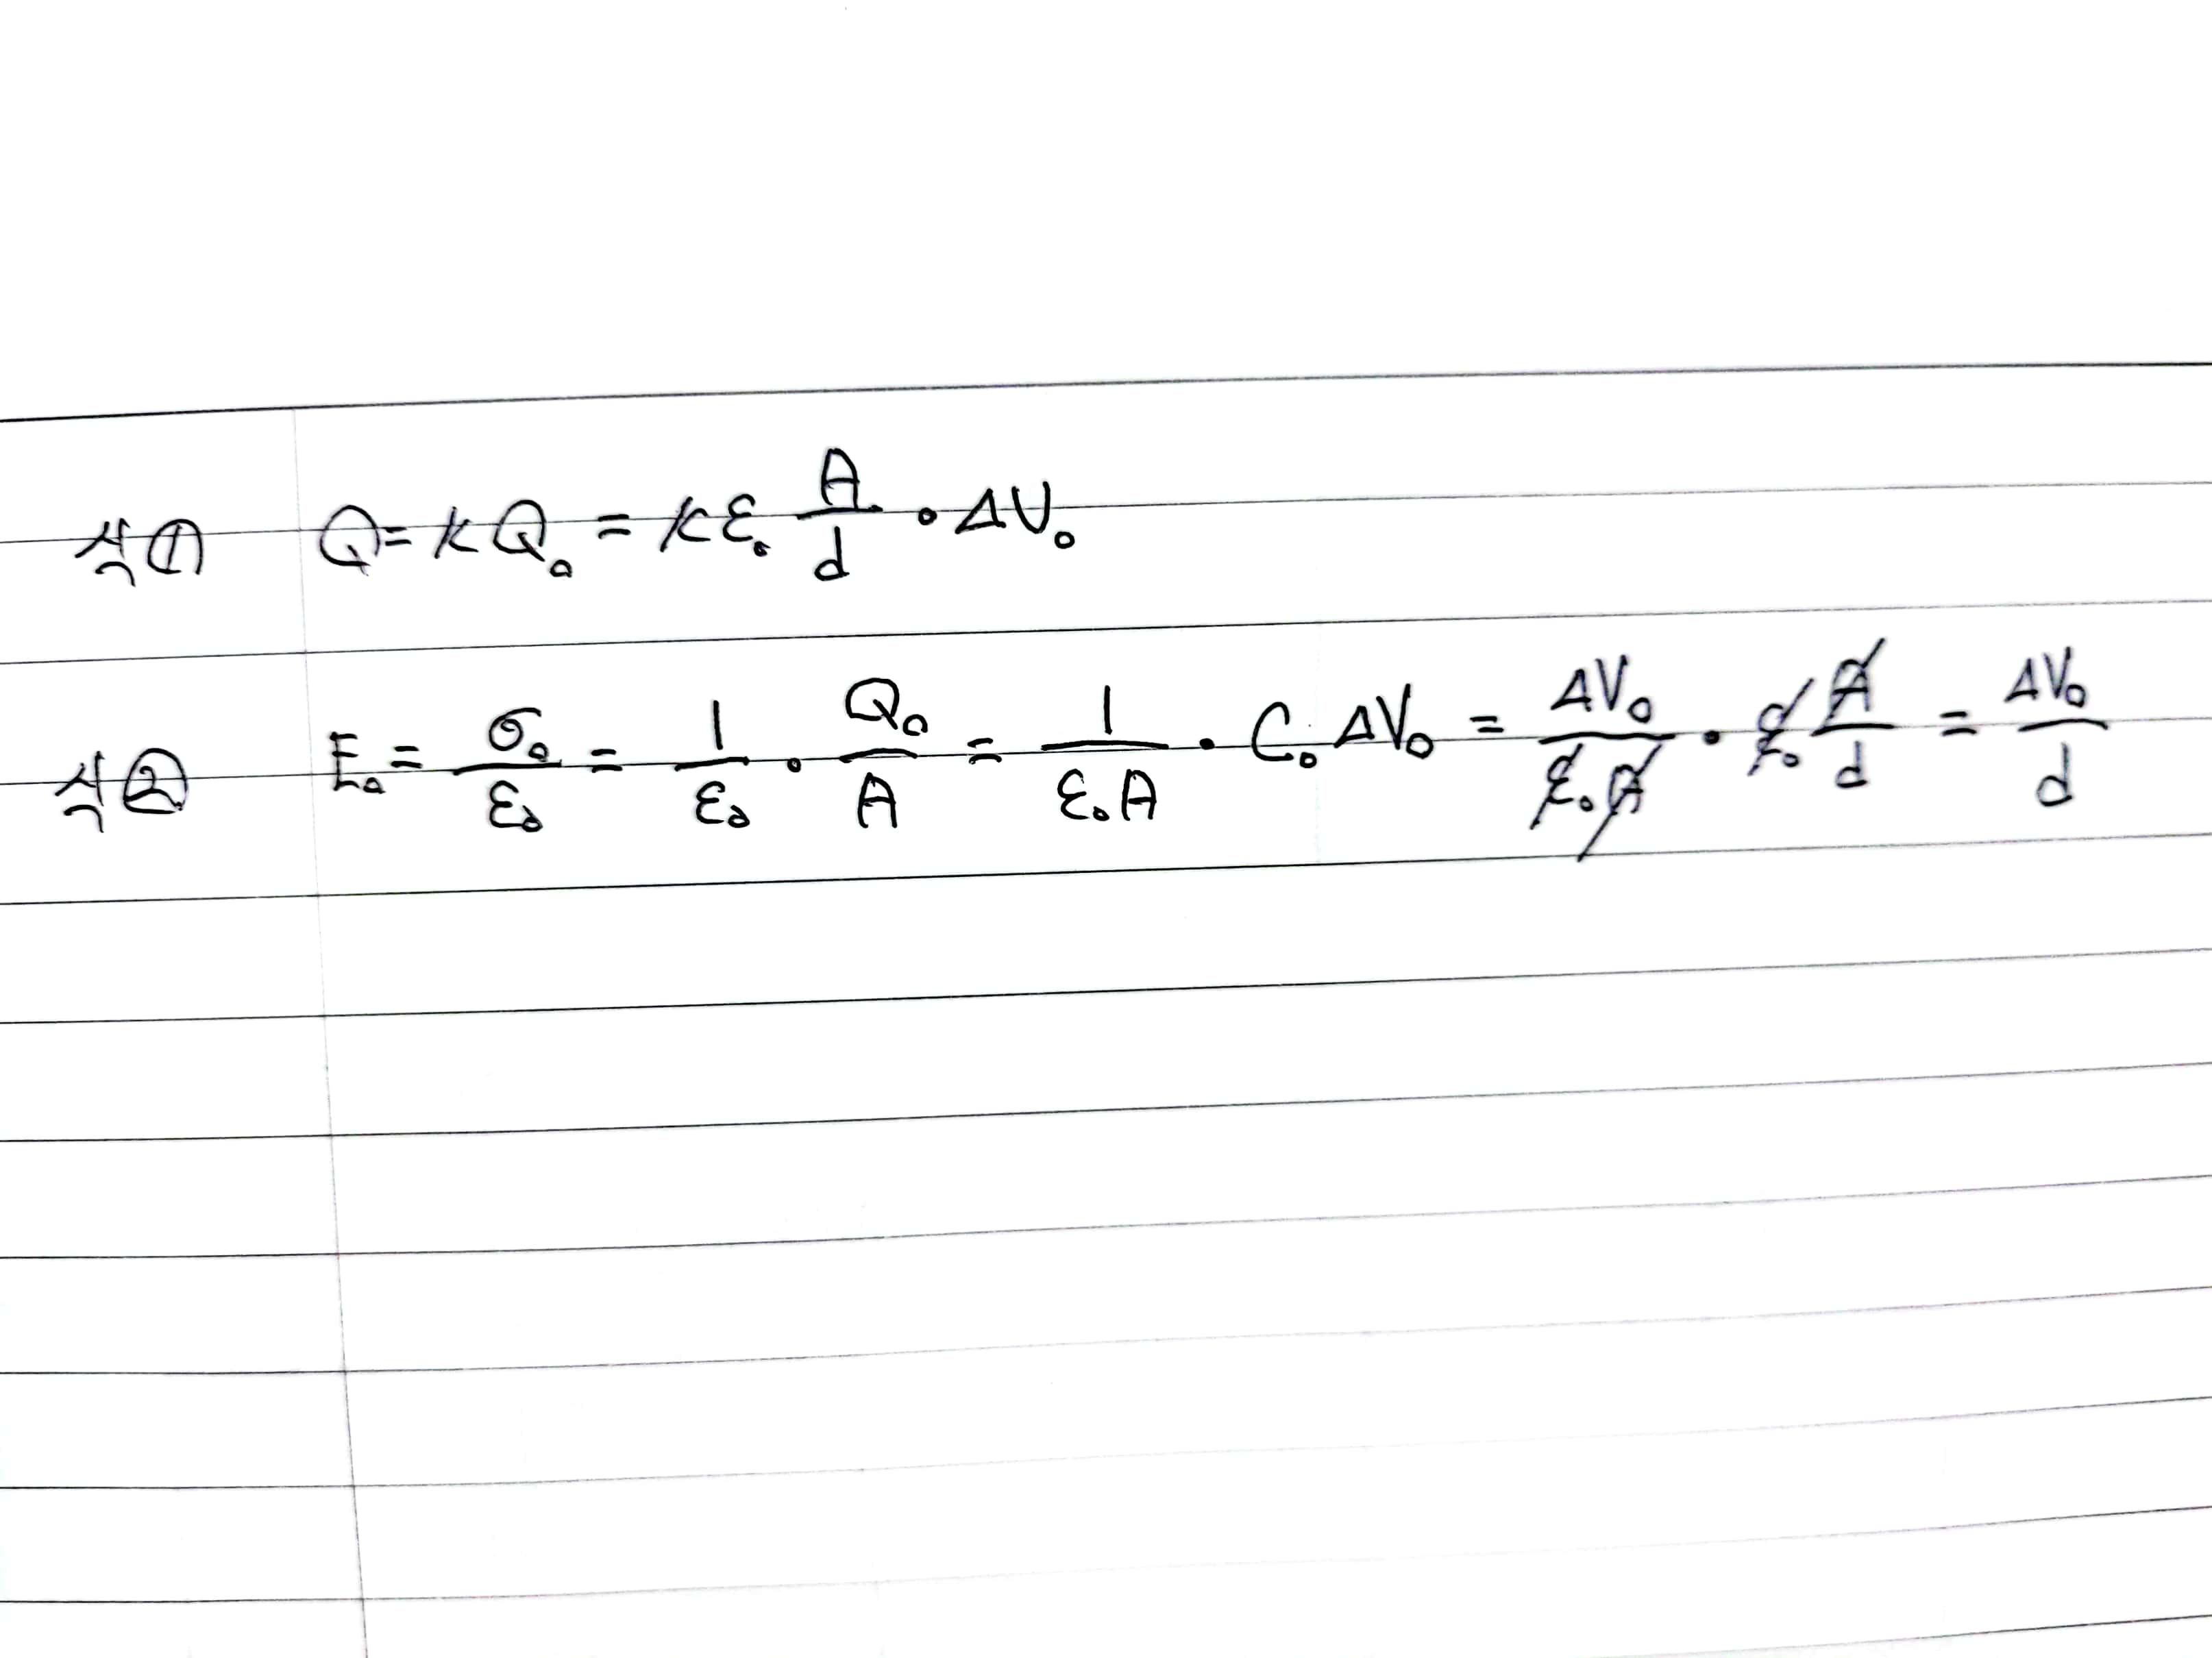 식① Q = κQ₀ = κε₀ A/d · ΔV₀
식② E₀ = σ₀/ε₀ = 1/ε₀ · Q₀/A = 1/(ε₀A) · C₀ΔV₀ = ΔV₀/(ε₀A) · ε₀ A/d = ΔV₀/d